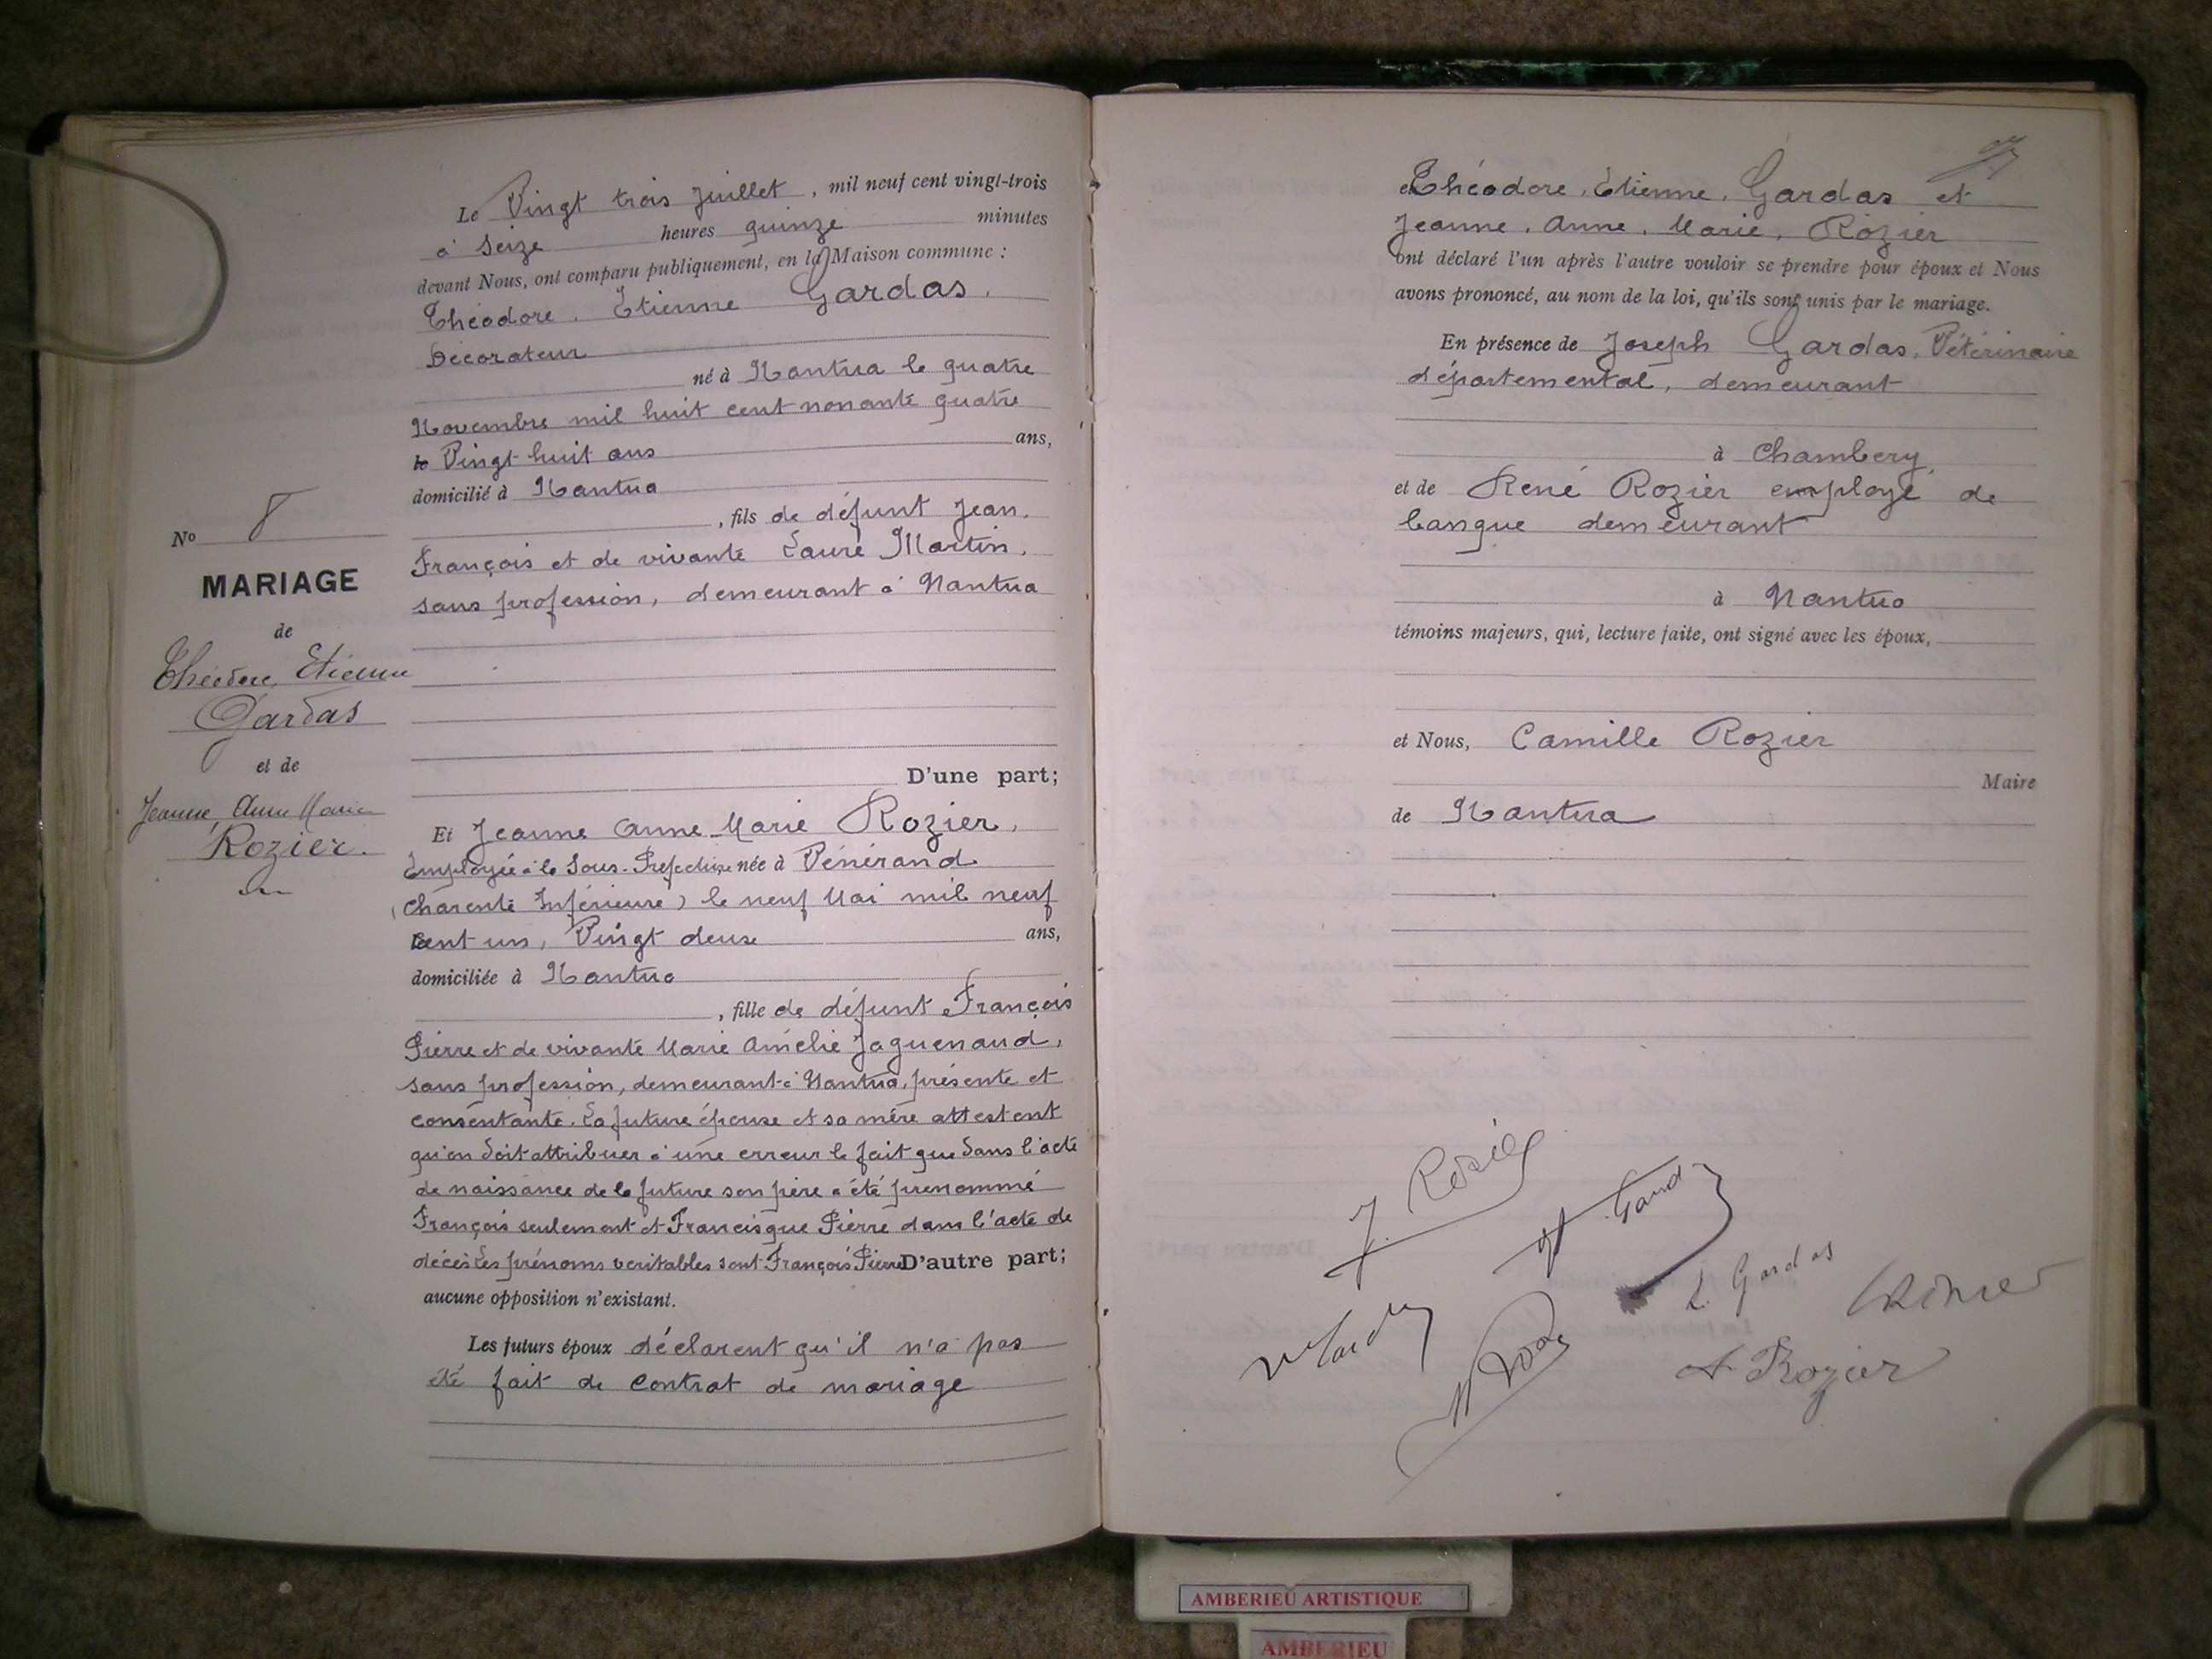 Le Vingt trois Juillet, mil neuf cent vingt-trois
à Seize heures quinze minutes
devant Nous, ont comparu publiquement, en la Maison commune :
Théodore. Etienne Gardas.
Décorateur
né à Nantua le quatre
Novembre mil huit cent nonante quatre
Vingt huit ans ans,
domicilié à Nantua
, fils de défunt Jean.
François et de vivante Laure Martin.
sans profession, demeurant à Nantua
D'une part;
No 8
MARIAGE
de
Théodore, Etienne
Gardas
et de
Jeanne, Anne Marie
Rozier.
Et Jeanne Anne Marie Rozier,
Employée à la Sous-Préfecture née à Vénérand
(Charente Inférieure) le neuf Mai mil neuf
cent un, Vingt deux ans,
domiciliée à Nantua
, fille de défunt François
Pierre et de vivante Marie Amélie Jaguenaud,
sans profession, demeurant à Nantua, présente et
consentante. La future épouse et sa mère attestent
qu'on doit attribuer à une erreur le fait que dans l'acte
de naissance de la future son père a été prénommé
François seulement et Francisque Pierre dans l'acte de
décès Les prénoms veritables sont François Pierre D'autre part;
aucune opposition n'existant.
Les futurs époux déclarent qu'il n'a pas
été fait de contrat de mariage
Théodore, Etienne, Gardas et
Jeanne, Anne, Marie, Rozier
ont déclaré l'un après l'autre vouloir se prendre pour époux et Nous
avons prononcé, au nom de la loi, qu'ils sont unis par le mariage.
En présence de Joseph Gardas, Vétérinaire
départemental, demeurant
à Chambery,
et de René Rozier employé de
banque demeurant
à Nantua
témoins majeurs, qui, lecture faite, ont signé avec les époux,
et Nous, Camille Rozier
Maire
de Nantua
J. Rozier
L. Gardas
A Rozier
AMBERIEU ARTISTIQUE
AMBERIEU